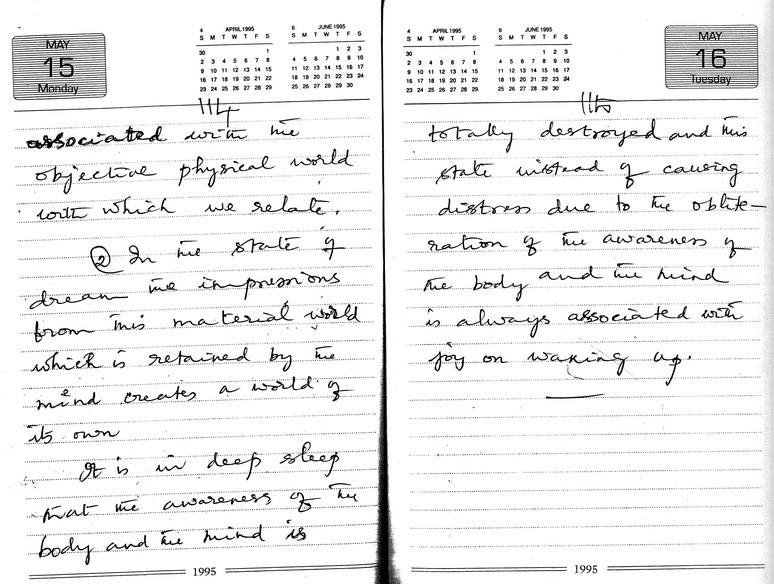 MAY
15
Monday
4 APRIL 1995
S M T W T F S
30 1
2 3 4 5 6 7 8
9 10 11 12 13 14 15
16 17 18 19 20 21 22
23 24 25 26 27 28 29
6 JUNE 1995
S M T W T F S
1 2 3
4 5 6 7 8 9 10
11 12 13 14 15 16 17
18 19 20 21 22 23 24
25 26 27 28 29 30
114
associated with the
objective physical world
with which we relate.
② In the state of
dream the impressions
from this material world
which is retained by the
mind creates a world of
its own
It is in deep sleep
that the awareness of the
body and the mind is
1995
4 APRIL 1995
S M T W T F S
30 1
2 3 4 5 6 7 8
9 10 11 12 13 14 15
16 17 18 19 20 21 22
23 24 25 26 27 28 29
6 JUNE 1995
S M T W T F S
1 2 3
4 5 6 7 8 9 10
11 12 13 14 15 16 17
18 19 20 21 22 23 24
25 26 27 28 29 30
MAY
16
Tuesday
115
totally destroyed and this
state instead of causing
distress due to the oblite-
ration of the awareness of
the body and the mind
is always associated with
joy on waking up.
1995